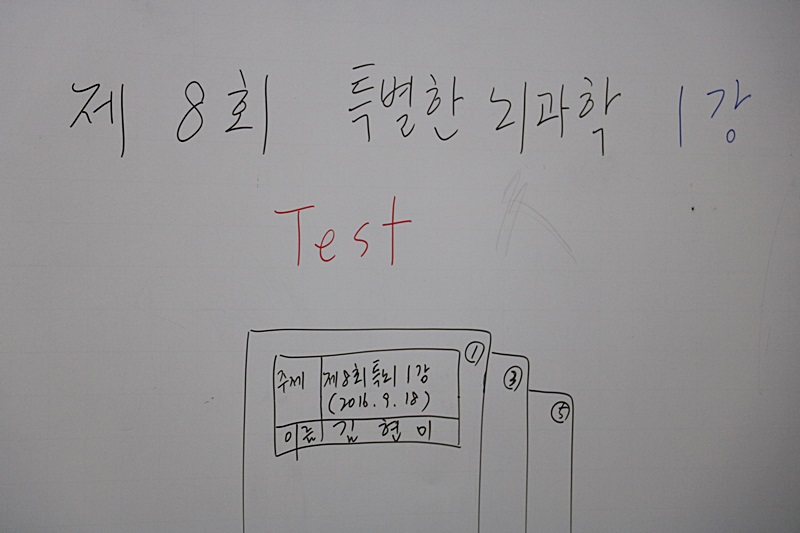 제 8회 특별한 뇌과학 1강
Test
① ③ ⑤
주제 제8회 특뇌 1강
(2016.9.18)
이름 김현미